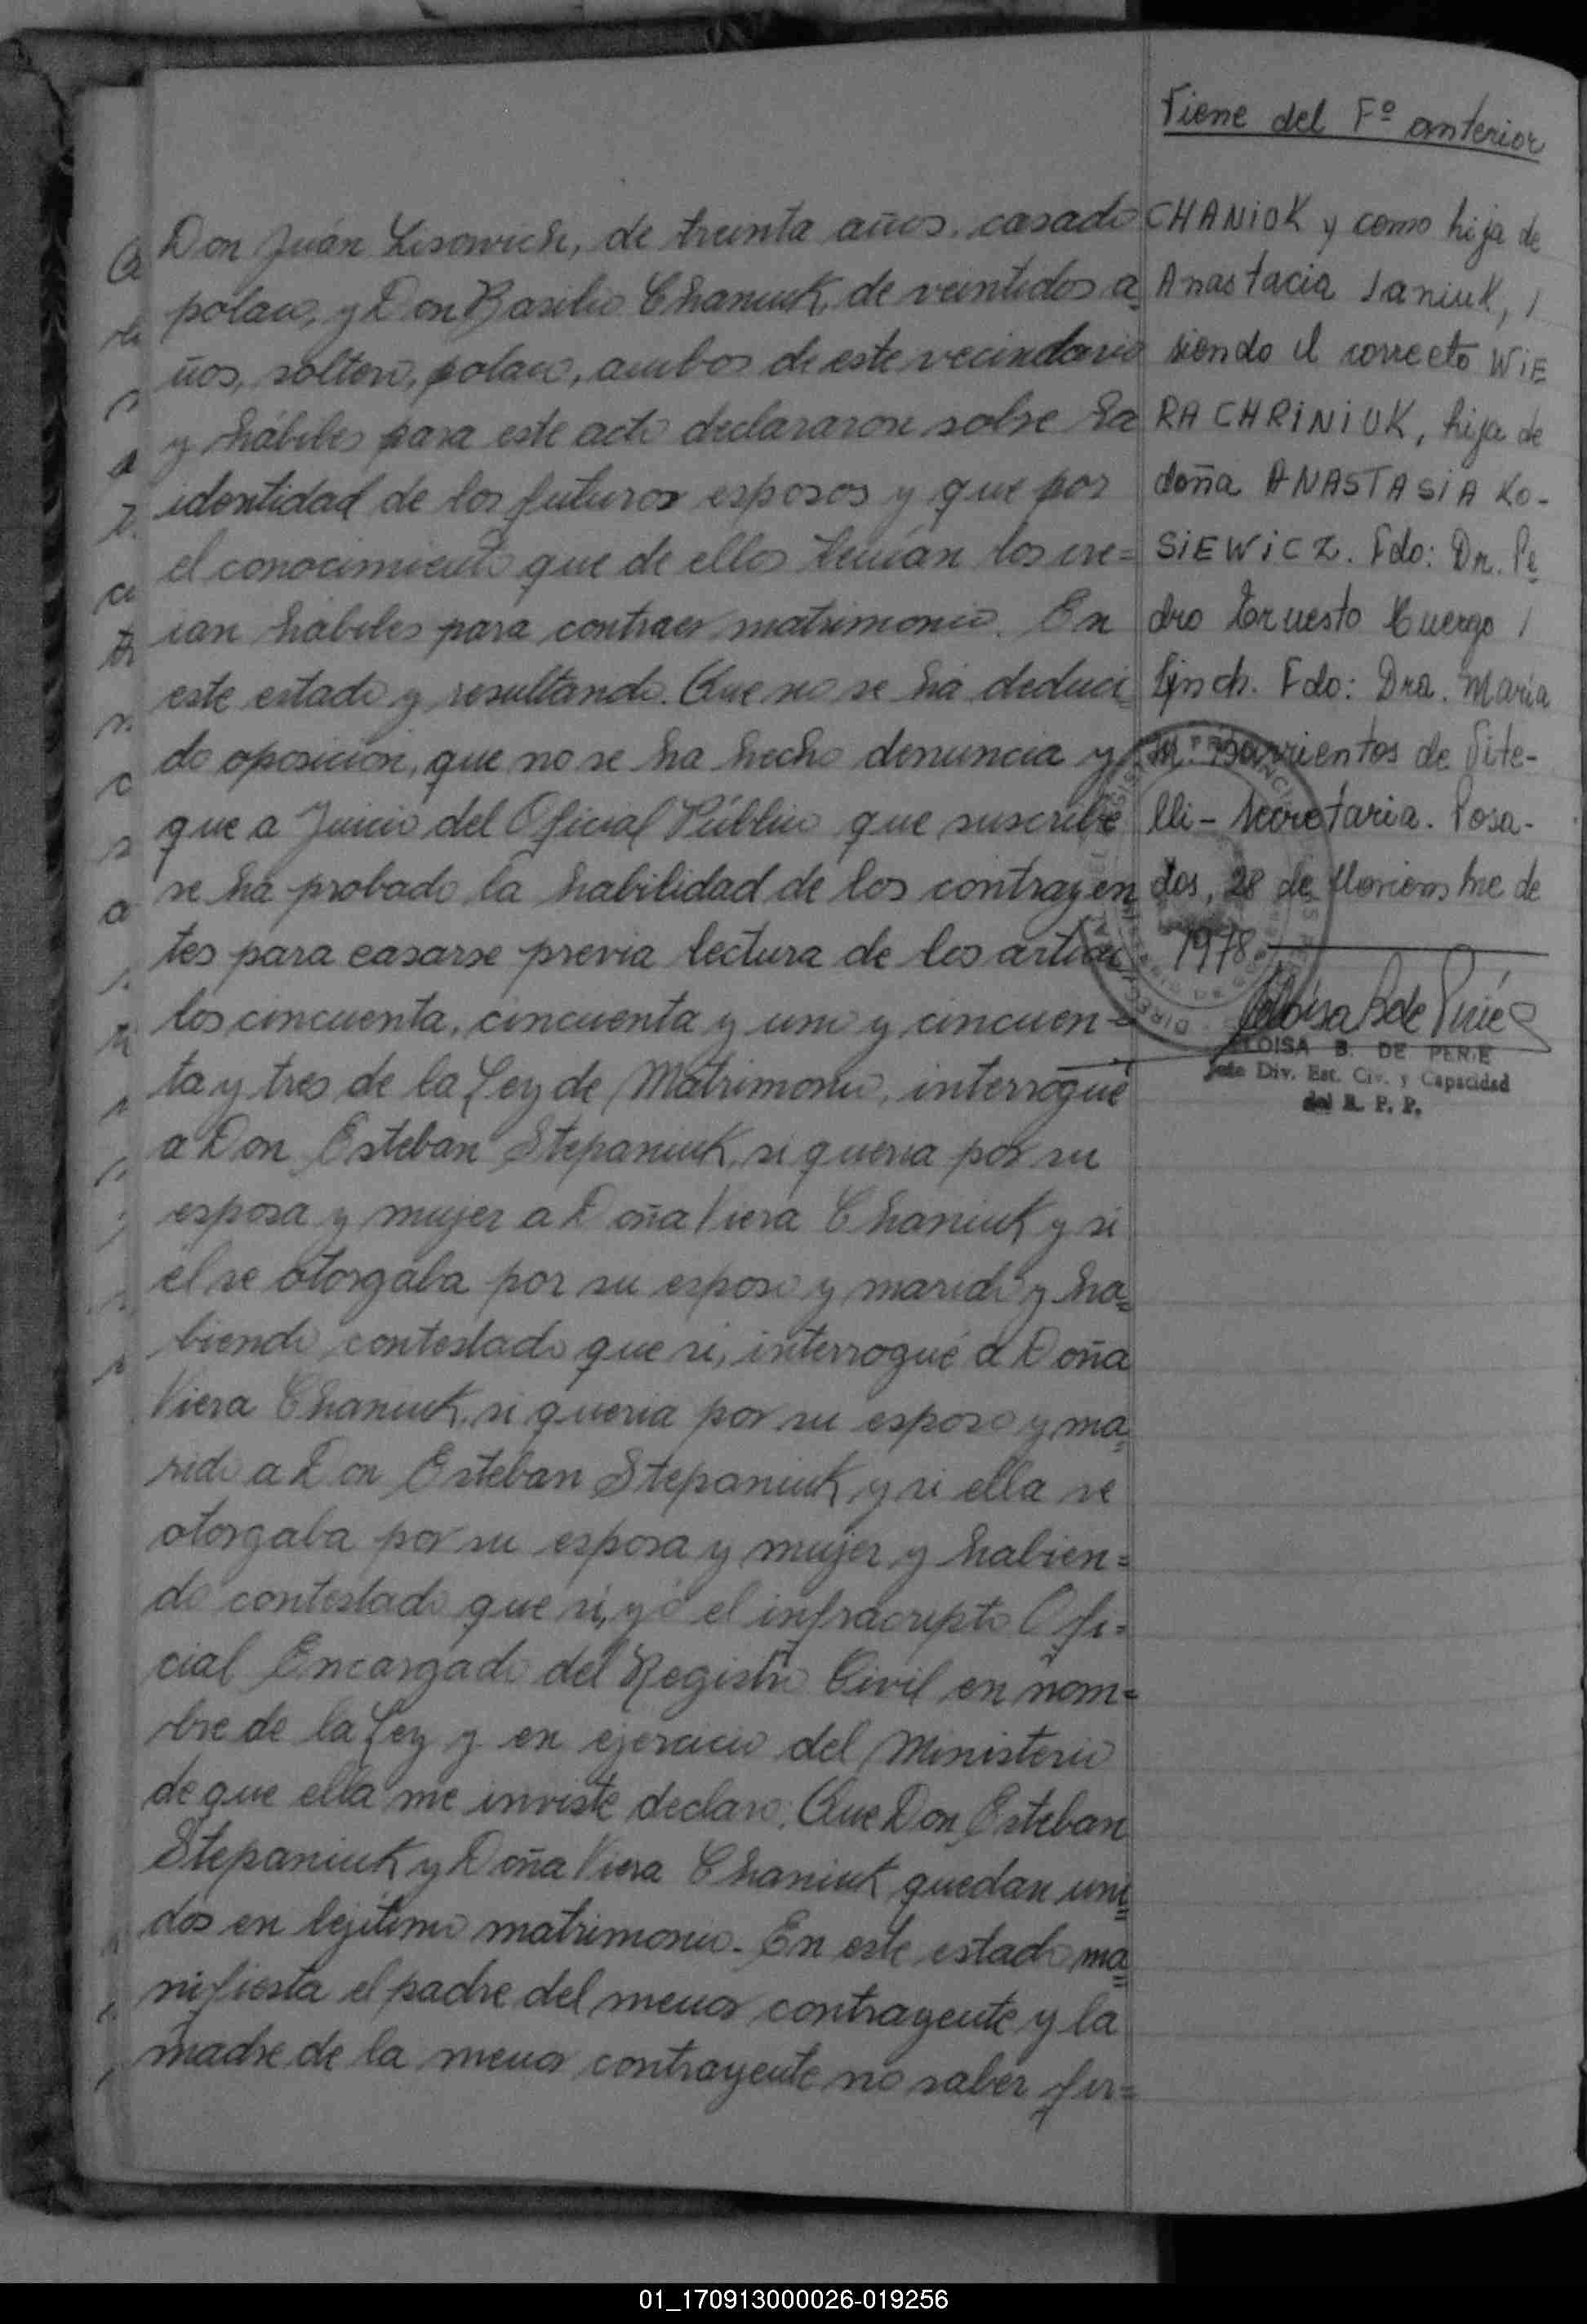 Don Juán Lisowich, de treinta años, casado
polaco, y Don Basilio Chaniuk, de veintidos a
ños, soltero, polaco, ambos de este vecindario
y hábiles para este acto declararon sobre la
identidad de los futuros esposos y que por
el conocimiento que de ellos tenían los cre=
ían hábiles para contraer matrimonio. En
este estado y resultando. Que no se ha deduci
do oposición, que no se ha hecho denuncia y
que a Juicio del Oficial Público que suscribe
se ha probado la habilidad de los contrayen
tes para casarse previa lectura de los artícu
los cincuenta, cincuenta y uno y cincuen=
ta y tres de la Ley de Matrimonio, interrogué
a Don Esteban Stepaniuk, si quería por su
esposa y mujer a Doña Viera Chaniuk y si
él se otorgaba por su esposo y marido y ha=
biendo contestado que si, interrogué a Doña
Viera Chaniuk, si quería por su esposo y ma=
rido a Don Esteban Stepaniuk, y si ella se
otorgaba por su esposa y mujer y habien=
do contestado que si, yó el infracripto Ofi=
cial Encargado del Registro Civil en nom=
bre de la Ley y en ejercicio del Ministerio
de que ella me inviste declaro: Que Don Esteban
Stepaniuk y Doña Viera Chaniuk quedan uni=
dos en lejítimo matrimonio. En este estado ma=
nifiesta el padre del menor contrayente y la
madre de la menor contrayente no saber fir=
Viene del Fº anterior
CHANIOK y como hija de
Anastacia Ianiuk, /
siendo el correcto WIE
RA CHRINIUK, hija de
doña ANASTASIA KO-
SIEWICZ. Fdo: Dr. Pe
dro Ernesto Cuergo /
Lynch. Fdo: Dra. María
M. Barrientos de Vite-
lli - Secretaria. Posa-
das, 28 de Noviembre de
1978
ELOISA B. DE PERIE
Jefe Div. Est. Civ. y Capacidad
del R. P. P.
01_170913000026-019256